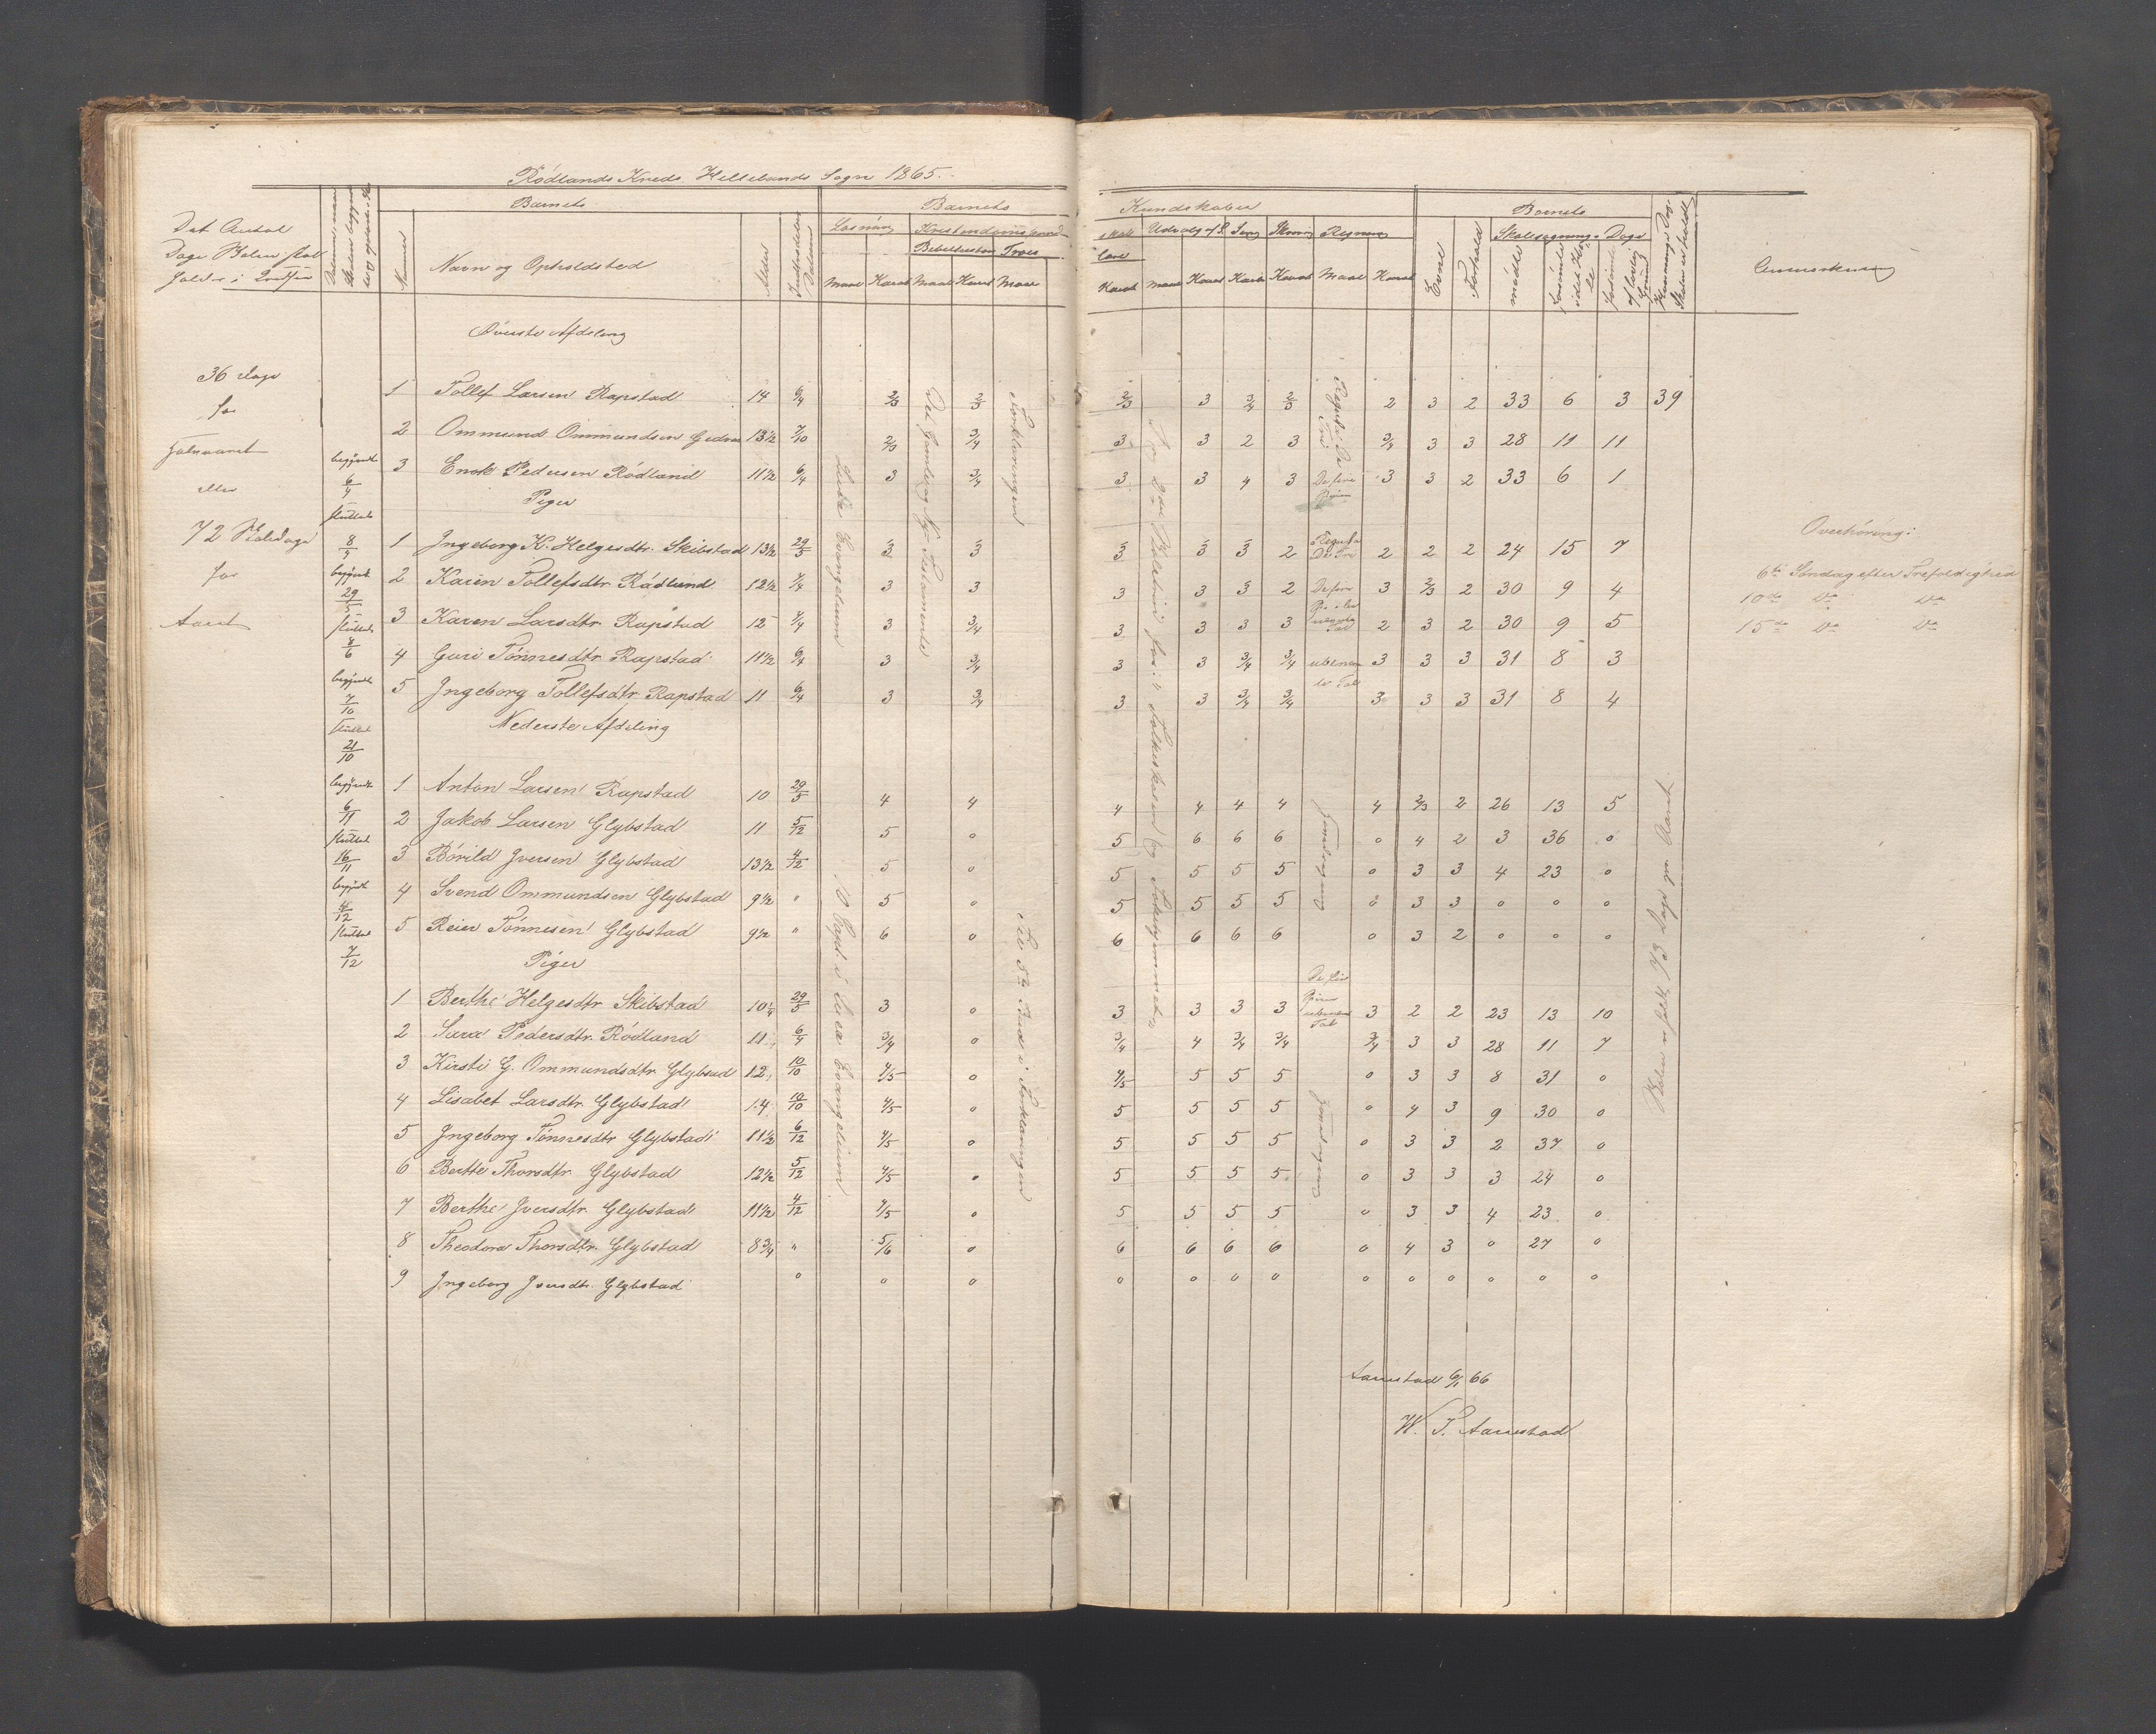 Rødlands Kreds Hellelands Sogn 1865.
Det Antal
Dage Skolen skal
holdes i Kredsen
Barnets
Barnets
Nummer
Navn og Opholdsted
Alder
Indtrædelses Datum
Læsning
Kristendomskund-
Bibelhistorie Troes
Maal Karak Maal Karak Maal
Øverste Afdeling
36 Dage
for
Halvaaret
eller
72 Skoledage
for
Aaret
begyndte
6/4
sluttet
8/4
begyndt
29/5
sluttet
8/6
begyndte
7/10
sluttet
21/10
begyndte
6/11
sluttet
16/11
begyndt
4/12
sluttet
7/12
1 Tollef Larsen Rapstad 14 6/4 2/3 2/3
2 Ommund Ommundsen 13 1/2 7/10 2/3 3/4
3 Enok Pedersen Rødland 11 1/2 6/4 3 3/4
Piger
1 Ingeborg K. Helgesdtr. Skibstad 13 1/2 29/5 3 3
2 Karen Tollefsdtr. Rødland 12 1/2 7/4 3 3
3 Karen Larsdtr. Rapstad 12 7/4 3 3/4
4 Guri Tønnesdtr. Rapstad 11 1/2 6/4 3 3/4
5 Ingeborg Tollefsdtr. Rapstad 11 6/4 3 3/4
Nederste Afdeling
1 Anton Larsen Rapstad 10 29/5 4 4
2 Jakob Larsen Glybstad 11 5/12 5 0
3 Børild Iversen Glybstad 13 1/2 4/12 5 0
4 Svend Ommundsen Glybstad 9 1/2 " 5 0
5 Reier Tønnesen Glybstad 9 1/2 " 6 0
Piger
1 Berthe Helgesdtr. Skibstad 10 1/4 29/5 3 0
2 Sara Pedersdtr. Rødland 11 6/4 3/4 0
3 Kirsti G. Ommundsdtr. Glybstad 12 10/10 4/5 0
4 Lisabet Larsdtr. Glybstad 14 10/10 4/5 0
5 Ingeborg Tønnesdtr Glybstad 11 1/2 6/12 4/5 0
6 Berthe Thorsdtr. Glybstad 12 1/2 5/12 4/5 0
7 Berthe Iversdtr. Glybstad 11 1/2 4/12 4/5 0
8 Theodora Thorsdtr. Glybstad 8 3/4 " 5/6 0
9 Ingeborg Iversdtr. Glybstad 0 0 0
Det Gamle og Nye Testamente
Forklaringen
Kundskaber
Barnets
skab
Udvalg af P. Sang Skrivn Regning
Evne
Forhold
Skolesøgnings- Dage
mødte
Anmærkning
Karak Maal Karak Karak Karak Maal Karak
2/3 3 3/4 2/3 2 3 2 33 6 3 39
3 3 2 3 3/4 3 3 28 11 11
3 3 4 3 3 3 2 33 6 1
3 3 3 2 2 2 2 24 15 7
3 3 3 2 3 2/3 2 30 9 4
3 3 3 3 2 3 2 30 9 5
3 3 3/4 3/4 3 3 3 31 8 3
3 3 3/4 3/4 3 3 3 31 8 4
4 4 4 4 4 2/3 2 26 13 5
5 6 6 6 0 4 2 3 36 0
5 5 5 5 0 3 3 4 23 0
5 5 5 5 0 3 3 0 0 0
6 6 6 6 0 3 2 0 0 0
3 3 3 3 3 2 2 23 13 10
3/4 4 3/4 3/4 3/4 3 3 28 11 7
4/5 5 5 5 0 3 3 8 31 0
5 5 5 5 0 4 3 9 30 0
5 5 5 5 0 3 3 2 37 0
5 5 5 5 0 3 3 3 24 0
5 5 5 5 0 3 3 4 23 0
6 6 6 6 0 4 3 0 27 0
0 0 0 0 0 0 0 0 0 0
Overhøring:
6te Søndag efter Trefoldighed
10de Do Do
15de Do Do
Aarrestad 6/1 66
W. T. Aarrestad